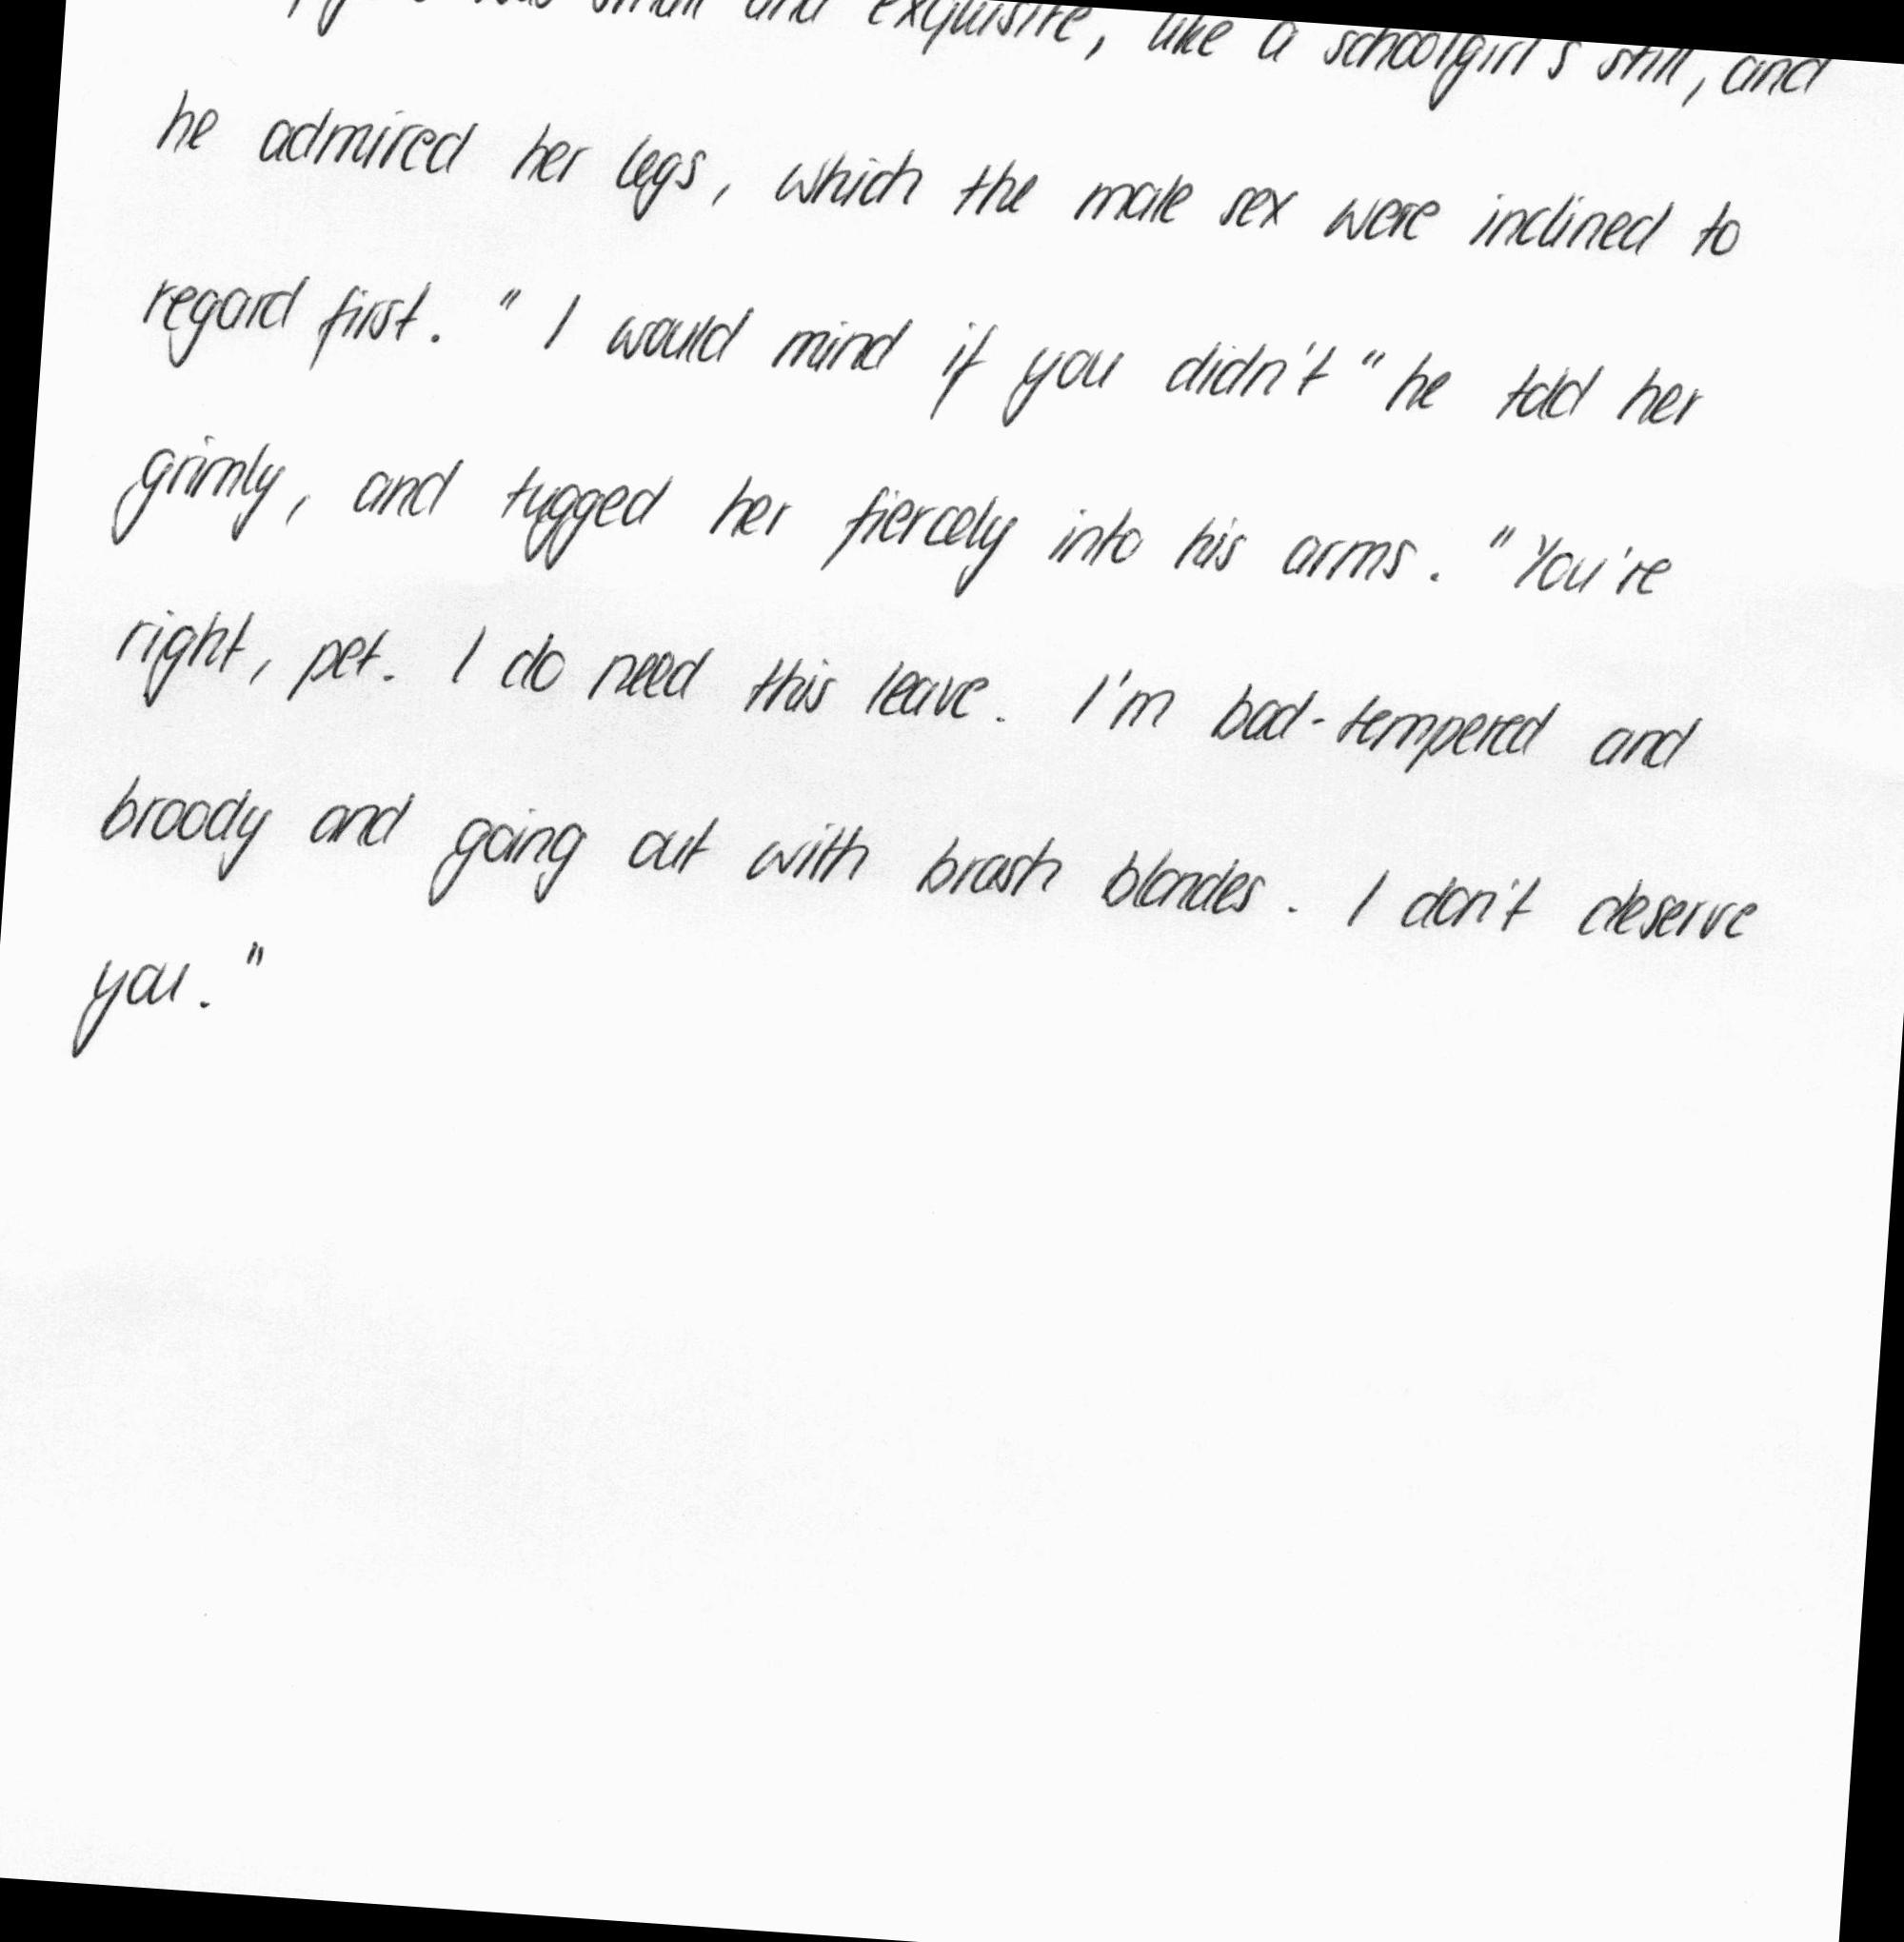 small and exquisite, like a schoolgirl's still, and
he admired her legs, which the male sex were inclined to
regard first. "I would mind if you didn't" he told her
grimly, and tugged her fiercely into his arms. "You're
right, pet. I do need this leave. I'm bad-tempered and
broody and going out with brash blondes. I don't deserve
you."